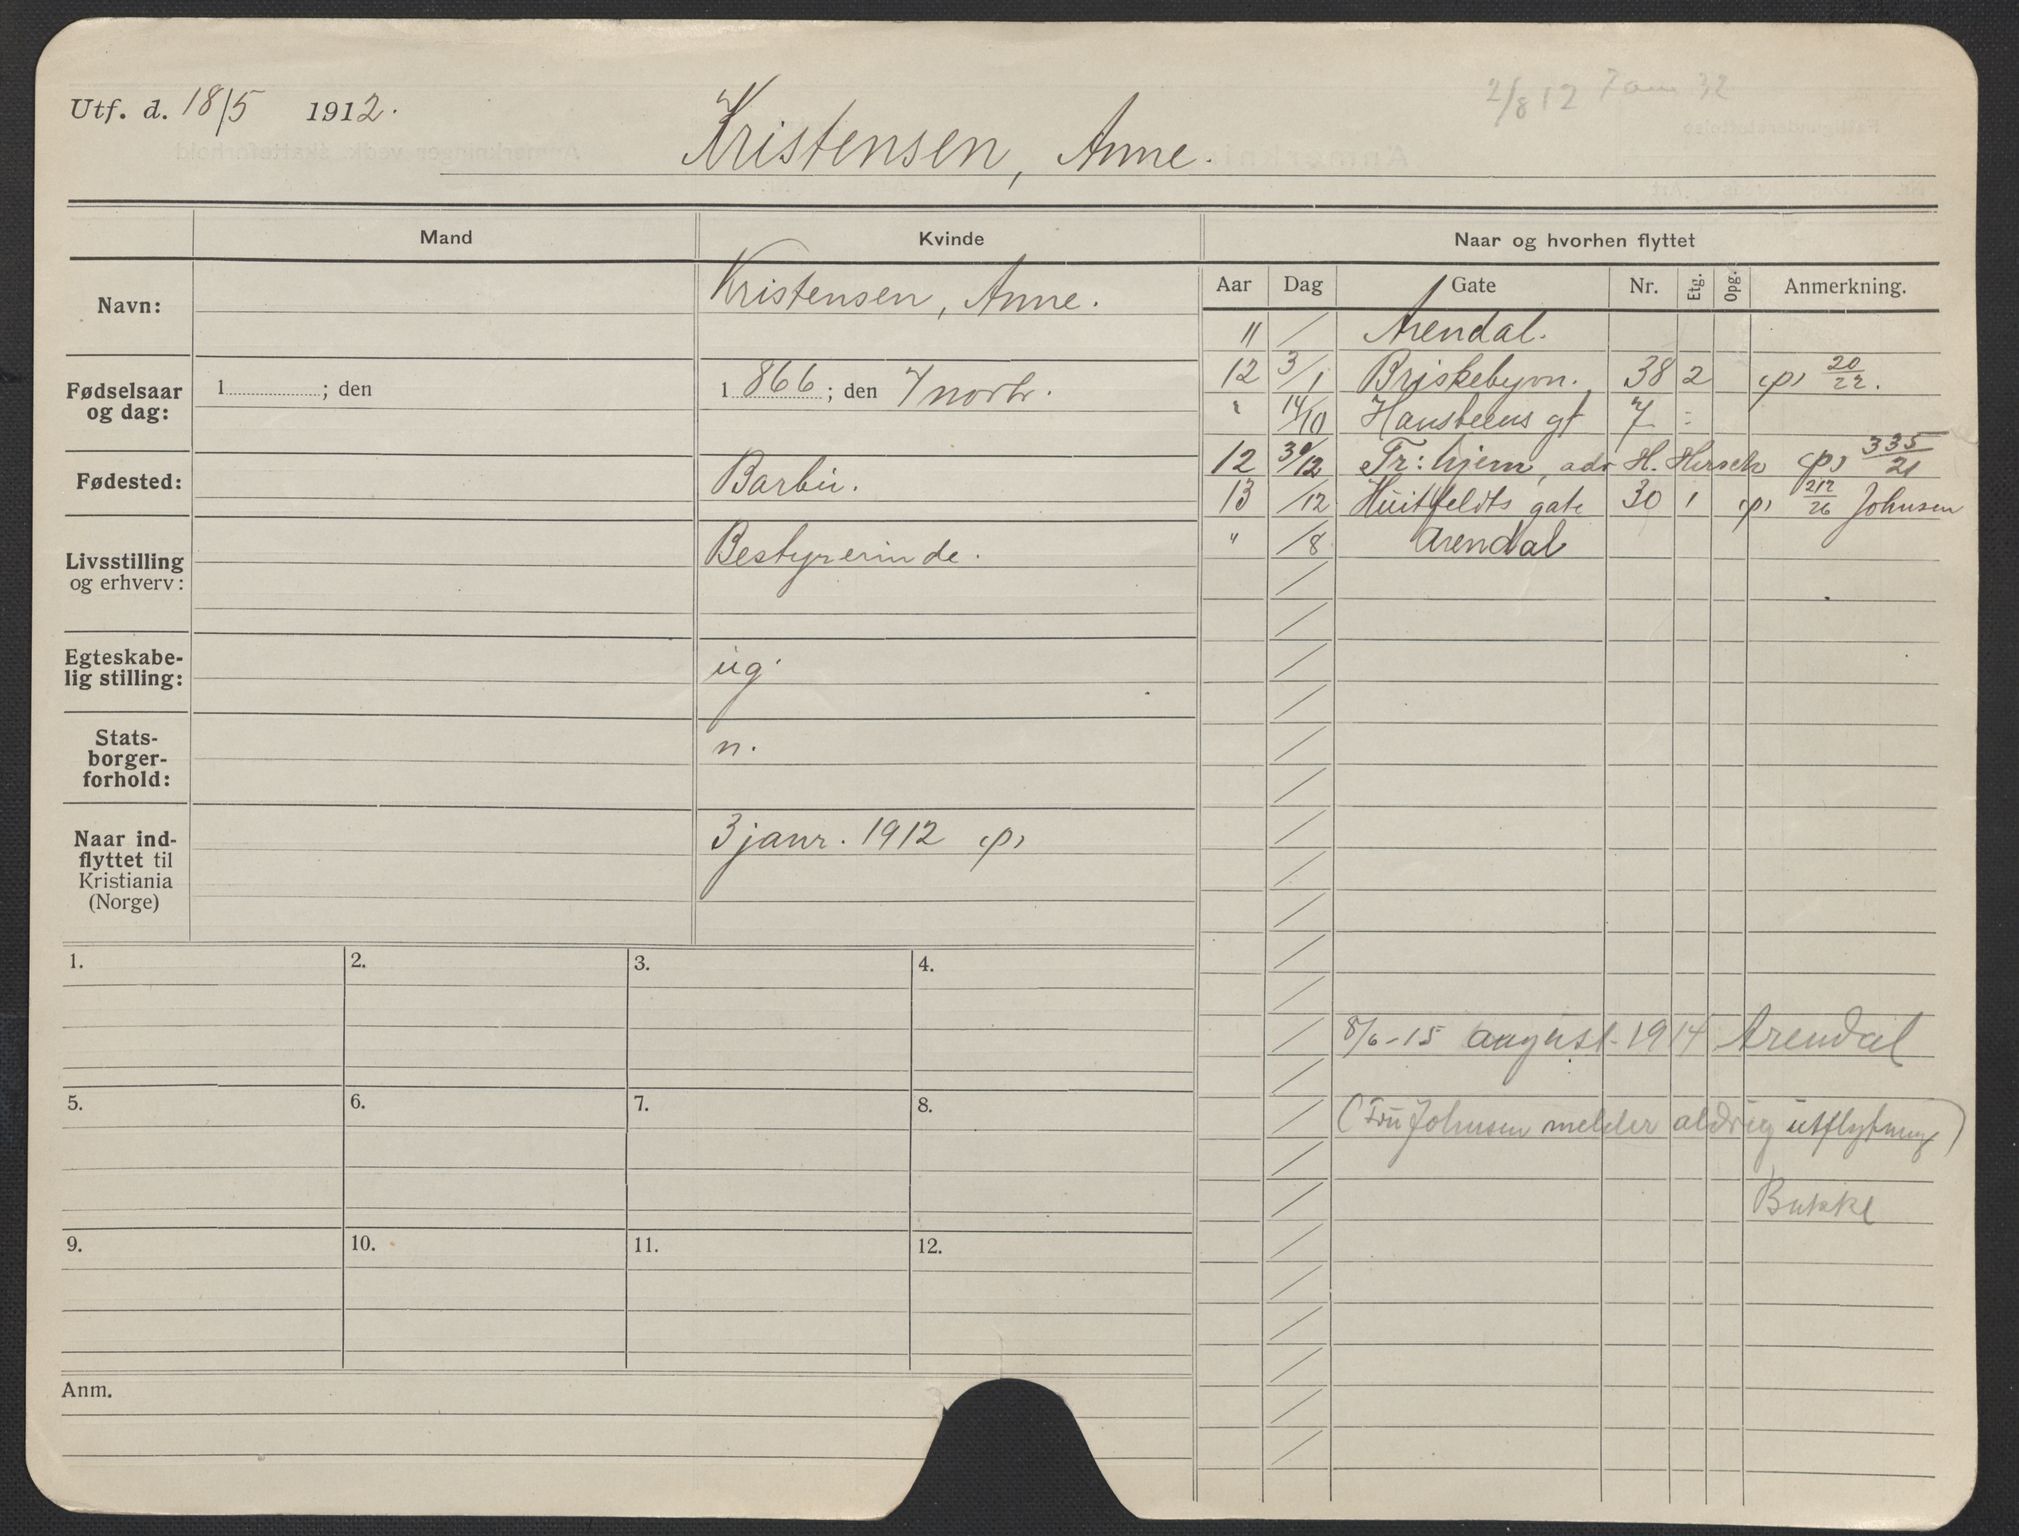 Utf. d. 18/5 1912.
2/8 12
Kristensen, Anne.
Mand
Kvinde
Naar og hvorhen flyttet
Navn:
Kristensen, Anne.
Aar Dag Gate Nr. Etg. Opg. Anmerkning.
11 / Arendal.
12 3/1 Briskebyvn. 38 2 (p) 20/22.
" 14/10 Hansteens gt 7 =
12 30/12 Fr: hjem, adr H. Hirsch (p) 335/21
13 /12 Huitfeldts gate 30 1 (p) 212/26 Johnsen
" /8 Arendal
Fødselsaar
og dag:
1 ; den
1 866 ; den 7 novbr.
Fødested:
Barbu.
Livsstilling
og erhverv:
Bestyrerinde.
Egteskabe-
lig stilling:
ug.
Stats-
borger-
forhold:
n.
Naar ind-
flyttet til
Kristiania
(Norge)
3 janr. 1912 (p)
1. 2. 3. 4.
5. 6. 7. 8.
9. 10. 11. 12.
Anm.
8/6 - 15 august - 1914 Arendal
(Fru Johnsen melder aldrig utflytning)
Bukke